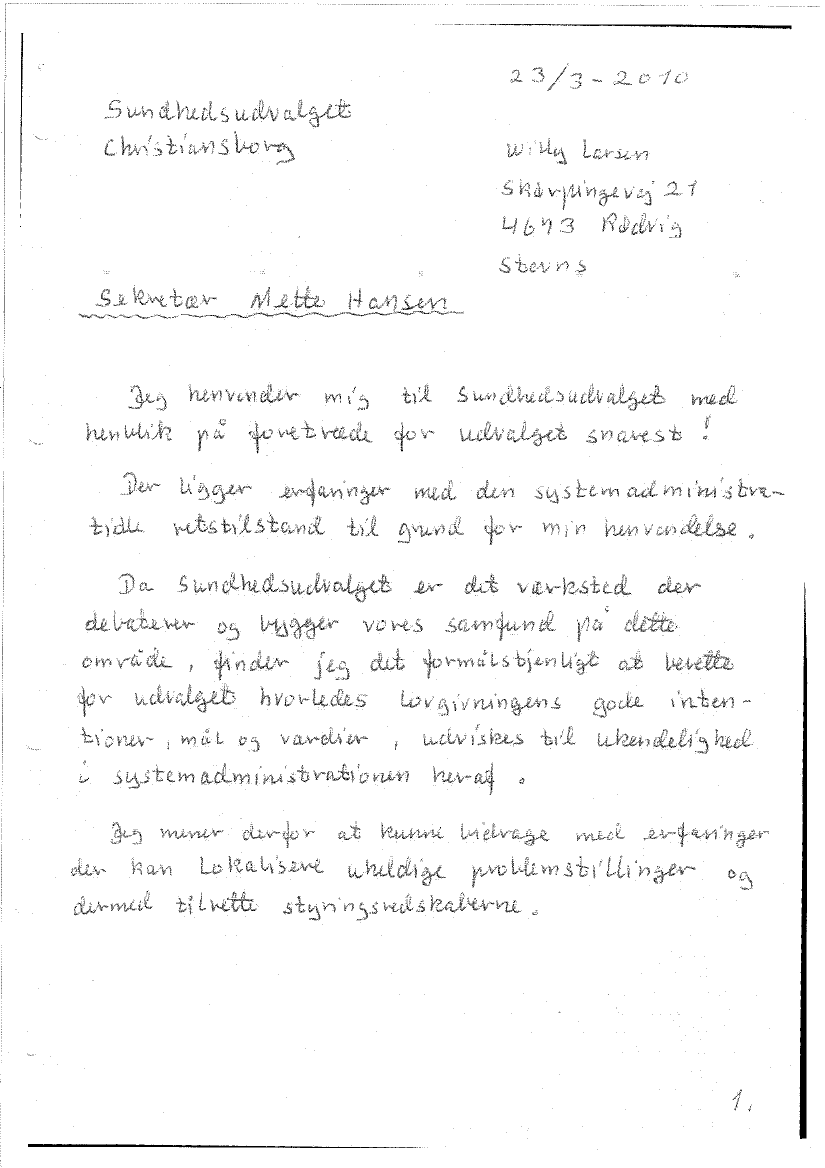 23/3-2010
Sundhedsudvalget
Christiansborg
Willy Larsen
Skørpingevej 21
4673 Rødvig
Stevns
Sekretær Mette Hansen
Jeg henvender mig til Sundhedsudvalget med
henblik på foretræde for udvalget snarest!
Der ligger erfaringer med den systemadministra-
tidle retstilstand til grund for min henvendelse.
Da Sundhedsudvalget er det værksted der
debaterer og bygger vores samfund på dette
område, finder jeg det formålstjenligt at berette
for udvalget hvorledes lovgivningens gode inten-
tioner, mål og værdier, udviskes til ukendelighed
i systemadministrationen heraf.
Jeg mener derfor at kunne bidrage med erfaringer
der kan lokalisere uheldige problemstillinger og
dermed tilrette styringsredskaberne.
1.